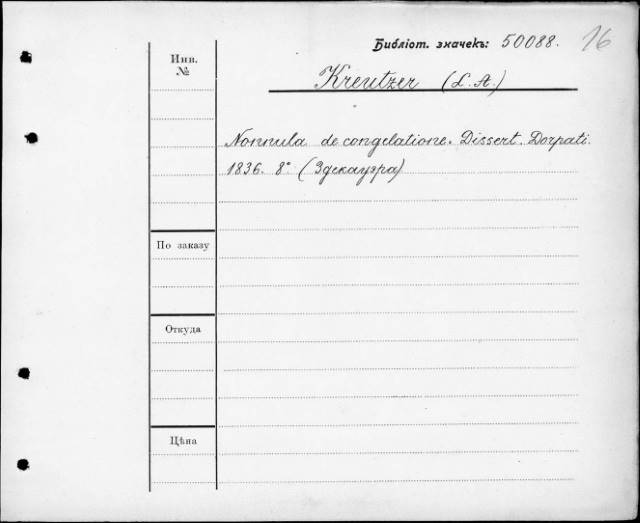 Библіот. значекъ: 50088. 16
Инв.
№
Kreutzer (L. A.)
Nonnula de congelatione. Dissert. Dorpati.
1836. 8° (Здекауэра)
По заказу
Откуда
Цѣна